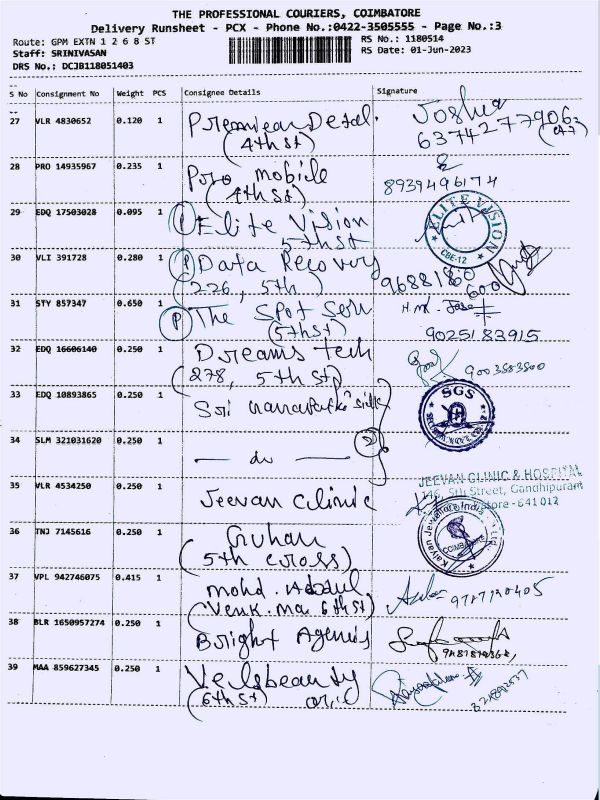 THE PROFESSIONAL COURIERS, COIMBATORE
Delivery Runsheet - PCX - Phone No.:0422-3505555 - Page No.:3
Route: GPM EXTN 1 2 6 8 ST
RS No.: 1180514
Staff: SRINIVASAN
RS Date: 01-Jun-2023
DRS No.: DCJB118051403
S No Consignment No Weight PCS Consignee Details Signature
27 VLR 4830652 0.120 1
Joshua
(4th st)
28 PRO 14935967 0.235 1 Pro mobile
(4th st)
8939496174
29 EDQ 17503028 0.095 1 Elite Vision
5th st
ELITE VISION
CBE-12
30 VLI 391728 0.280 1 (P) Data Recovery
(226, 5th)
31 STY 857347 0.650 1 (P) The Spot
(5th st)
9025183915
32 EDQ 16606140 0.250 1 Dreams tech
(278, 5th st)
33 EDQ 10893865 0.250 1 Sri
SGS
34 SLM 321031620 0.250 1 — do —
35 VLR 4534250 0.250 1 Jeevan Clinic
JEEVAN CLINIC & HOSPITAL
146, 5th Street, Gandhipuram
641 012
36 TNJ 7145616 0.250 1 Guhan
(5th cross)
Kalyan Jewellers India
COIMBATORE
37 VPL 942746075 0.415 1 Mohd. Abdul
(Venk. 6th st)
38 BLR 1650957274 0.250 1 Bright Agencies
39 MAA 859627345 0.250 1 Velsbeauty
(6th st)